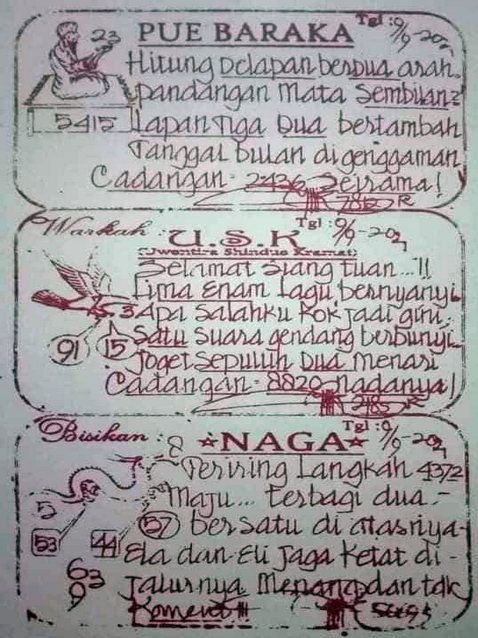 PUE BARAKA
Tgl : 9/9-20
23
Hitung Delapan berdua arah
pandangan Mata Sembilan2
5415
Lapan Tiga Dua bertambah
Tanggal bulan digenggaman
Cadangan - 2436 Seirama!
Warkah :
Tgl : 9/9-20
U.S.K
(Jwentira Shinduo Kramat)
Selamat siang tuan...!!
Lima Enam Lagu bernyanyi
5.3 Apa Salahku Kok jadi gini
91
15
Satu Suara gendang berbunyi
Joget Sepuluh Dua Menari
Cadangan - 8820 nadanya!
2485
Bisikan :
Tgl : 9/9-20
NAGA
8
Teriring Langkah 4372
Maju... terbagi dua -
5
57
bersatu di atasnya -
53
44
Ela dan Eli Jaga Ketat di -
63
9
Jalurnya Menang dan tdk
Koment !!!